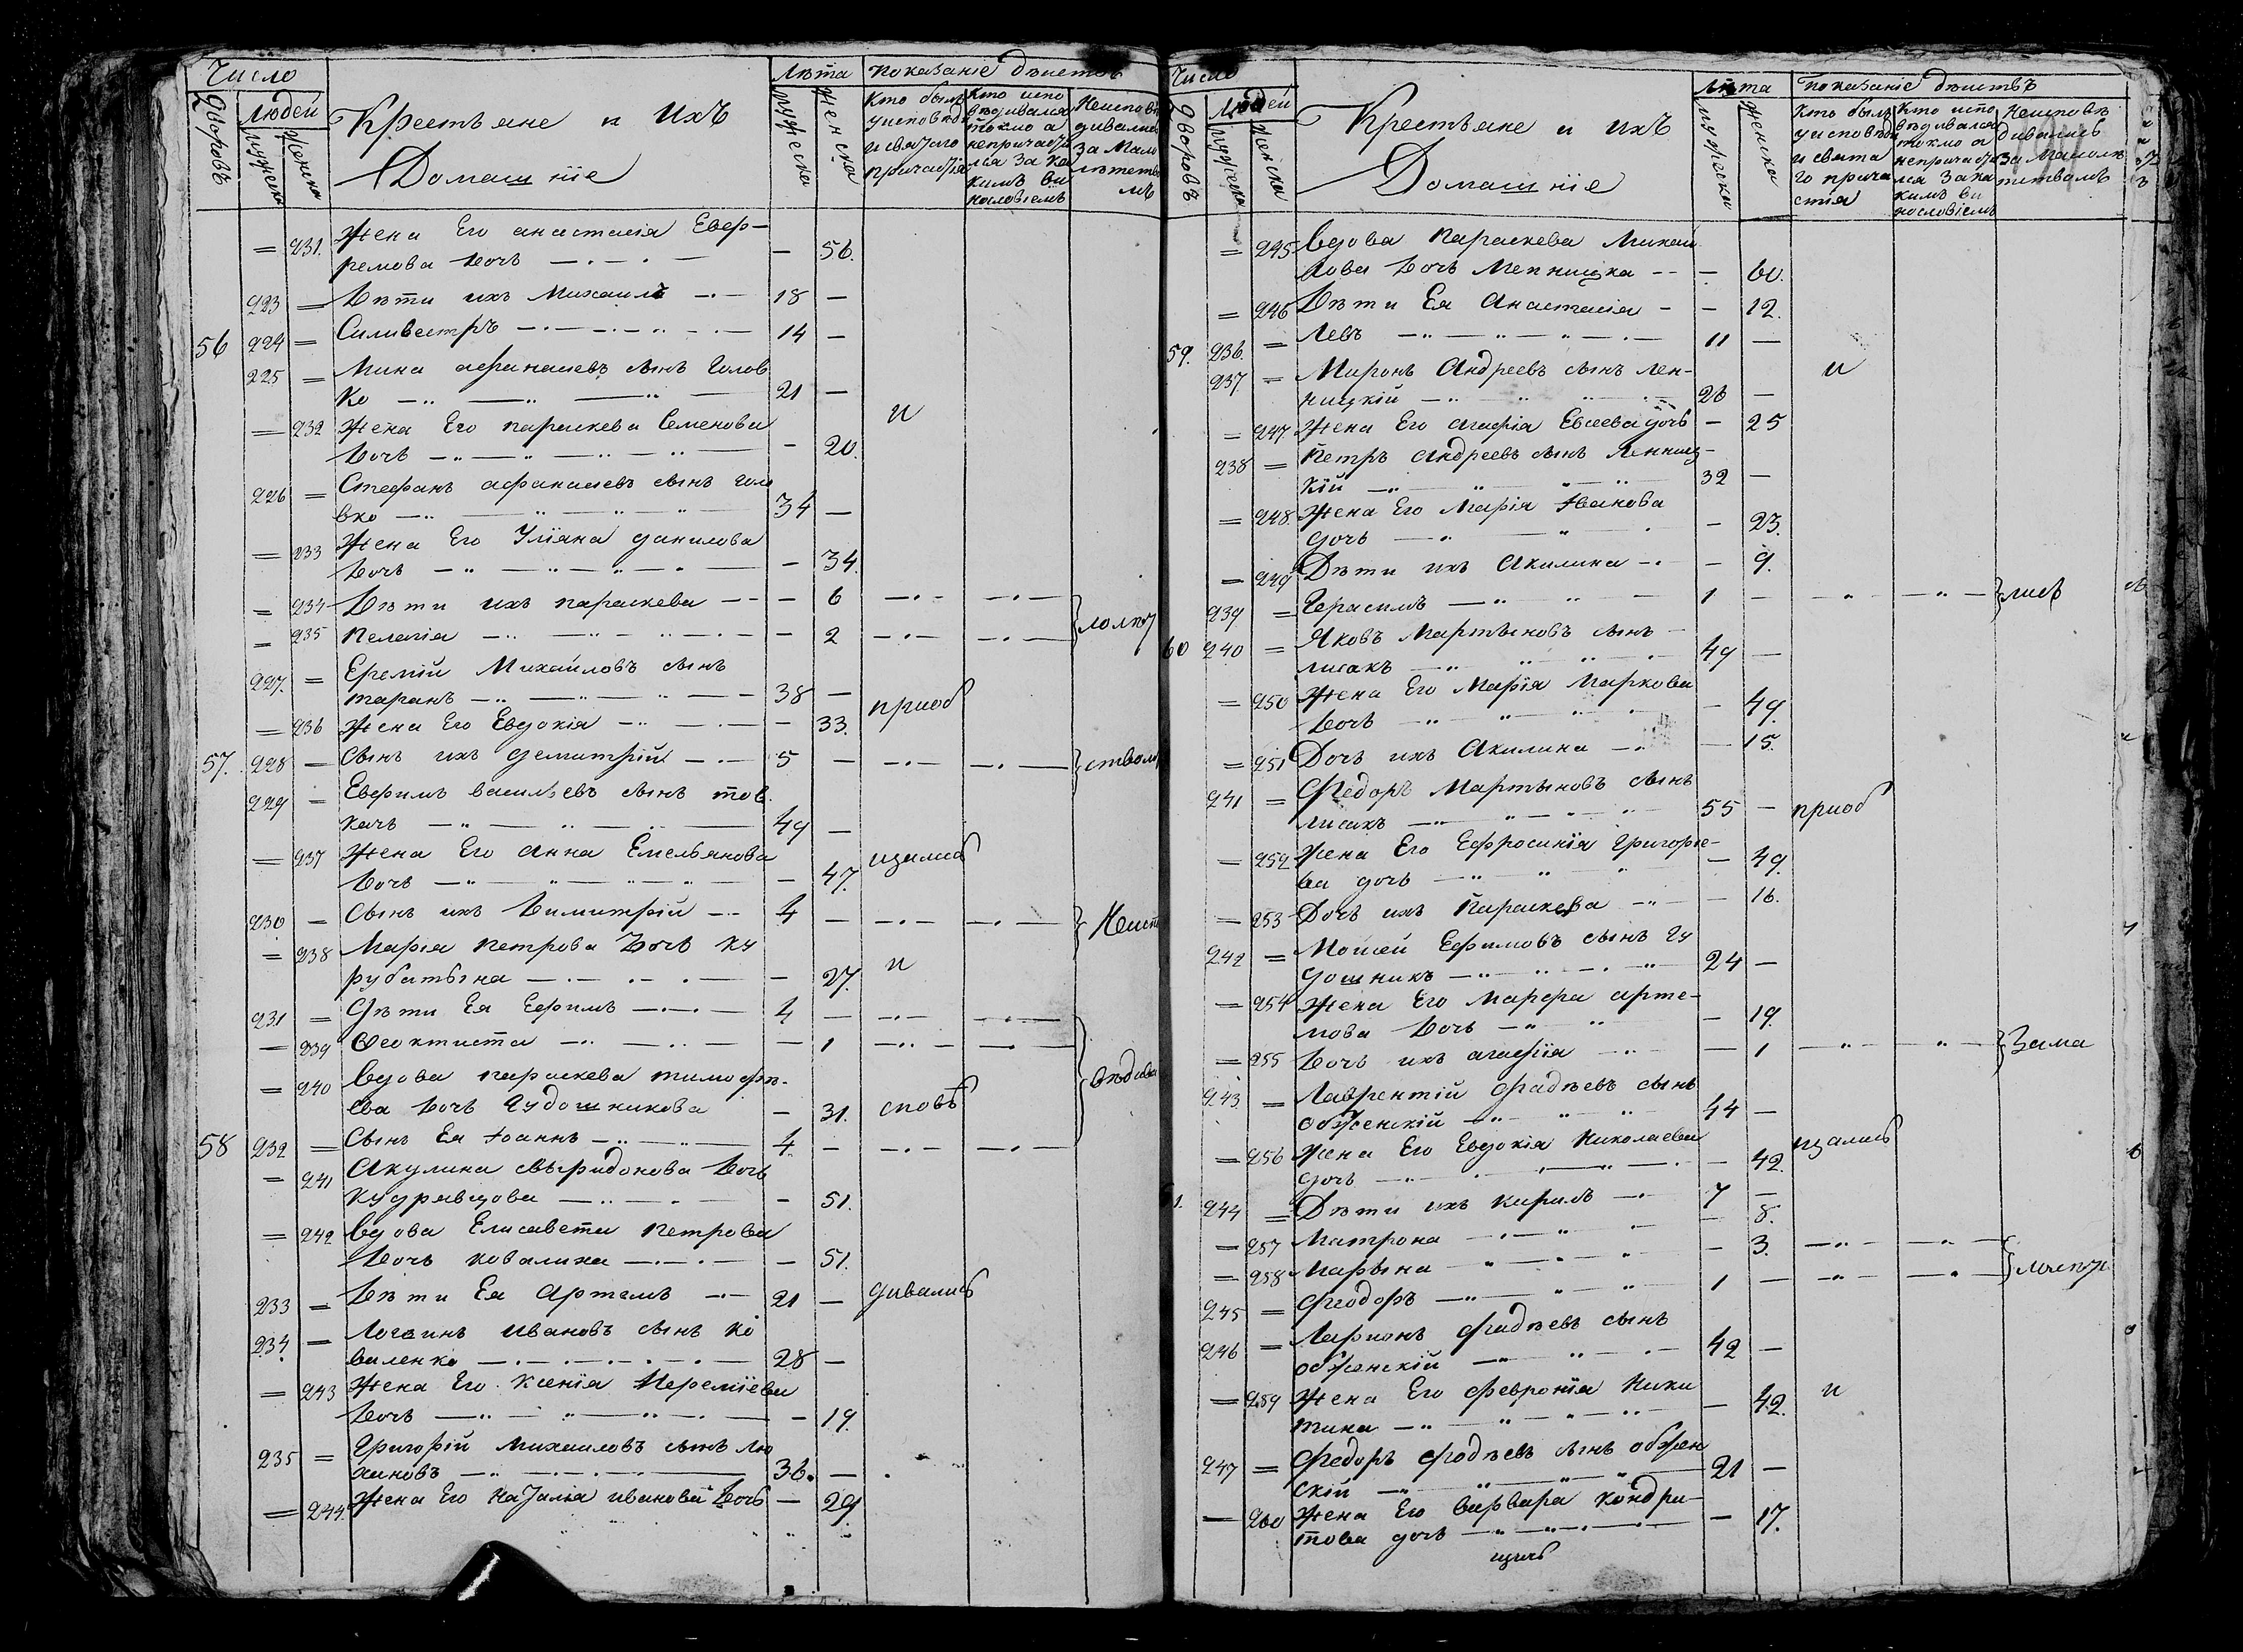 Число
Дворовъ
Людей
мужеска
женска
Крестьяне и ихъ
Домашнiе
Лѣта
мужеска
женска
показанiе дѣиствъ
Кто былъ
у исповѣди
и святаго
причастiя
Кто испо
вѣдивался
токмо а
непричасти
лся за ка
кимъ ви
нословiемъ
Неисповѣ
дивались
за мало
лѣтетво
мъ
= 231. Жена Его анастасiя Евер-
ремова дочь — 56.
223 = Дѣти ихъ Михаилъ 18 —
56 224 = Силивестръ 14 —
225 = Мина афанасиевъ сынъ Голов
ко 21 —
= 232 Жена Его параскева Семенова
дочь — 20. и
226 = Стефанъ афанасиевъ сынъ голо
вко 34 —
= 233 Жена Его Улiяна данилова
дочь — 34.
= 234 Дѣти ихъ параскева — 6
= 235 Пелагiя — 2
227. = Еремiй Михайловъ сынъ
таранъ 38 —
= 236 Жена Его Евдокiя — 33. приоб
57. 228 — Сынъ ихъ Демитрiй 5 — ством
229 = Евфимъ васильевъ сынъ тов
качъ 49 —
= 237 Жена Его Анна Емельянова
дочь — 47. щались
230 = Сынъ ихъ Димитрiй 4 — Неисп
= 238 Марiя Петрова Дочь ку
рубатына — 27. и
231 = Дѣти Ея Ефимъ 4 —
= 239 Феоктиста — 1
= 240 Вдова параскева тимофѣ-
ева дочь Гудошникова — 31. сповѣ
58 232 = Сынъ Ея Iоаннъ 4. —
= 241 Акулина свыридонова дочь
кудрявцова — 51.
= 242 Вдова Елисавета Петрова
дочь ковалиха — 51.
233 = Дѣти Ея Артемъ 21 — дивались
234 = Логвинъ ивановъ сынъ ко
валенко 28 —
= 243 Жена Его Ксенiя Иеремiева
дочь — 19.
235 = Григорiй михаиловъ сынъ лю
хановъ 36. —
= 244. Жена Его Наталiя иванова дочь — 29
Число
Дворовъ
Людей
мужеска
женска
Крестьяне и ихъ
Домашнiе
Лѣта
мужеска
женска
показанiе дѣиствъ
Кто былъ
у исповѣди
и свята
го прича
стiя
Кто испо
вѣдивался
токмо а
непричасти
лся за ка
кимъ ви
нословiемъ
Неисповѣ
дивались
за малолѣ
тетвомъ
= 245 Вдова Параскева Михаи
лова дочь Лепницка — 60.
= 246 Дѣти Ея Анастасiя — 12.
59. 236. = Левъ 11 —
237 = Миронъ Андреевъ сынъ лен-
ницкiй 26 — и
= 247 Жена Его агафiя Евсеева дочь — 25
238 = Петръ Андреевъ сынъ Ленниц-
кiй 32 —
= 248 Жена Его Марiя Iванова
дочь — 23.
= 249 Дѣти ихъ Акилина — 9.
239 = Герасимъ 1 — лись
60 240 = Яковъ Мартыновъ сынъ
лисакъ 49 —
= 250 Жена Его Марiя Маркова
дочь — 49.
= 251 Дочь ихъ Акилина — 15.
241 = Федоръ Мартыновъ сынъ
лисакъ 55 — приоб
= 252 Жена Его Ефросинiя Григорiе-
ва дочь — 49.
= 253 Дочь ихъ Параскева — 16.
242 = Мосей Ефимовъ сынъ Гу
дошникъ 24 —
= 254 Жена Его Марфа арте-
мова дочь — 19.
= 255 Дочь ихъ агафiя — 1 Зама
243 = Лаврентiй Фадѣевъ сынъ
обженскiй 44 —
= 256 Жена Его Евдокiя Николаева
дочь — 42. щались
244 = Дѣти ихъ Кирилъ 7 —
= 257 Матрона — 8.
= 258 Марына — 3.
245 = Феодоръ 1 —
246 = Ларионъ Фадѣевъ сынъ
обженскiй 42 —
= 259 Жена Его февронiя Ники
тина — 42. и
247 = Федоръ Фадѣевъ сынъ обжен
скiй 21 —
— 260 Жена Его Варвара Кондра-
това дочь — 17.